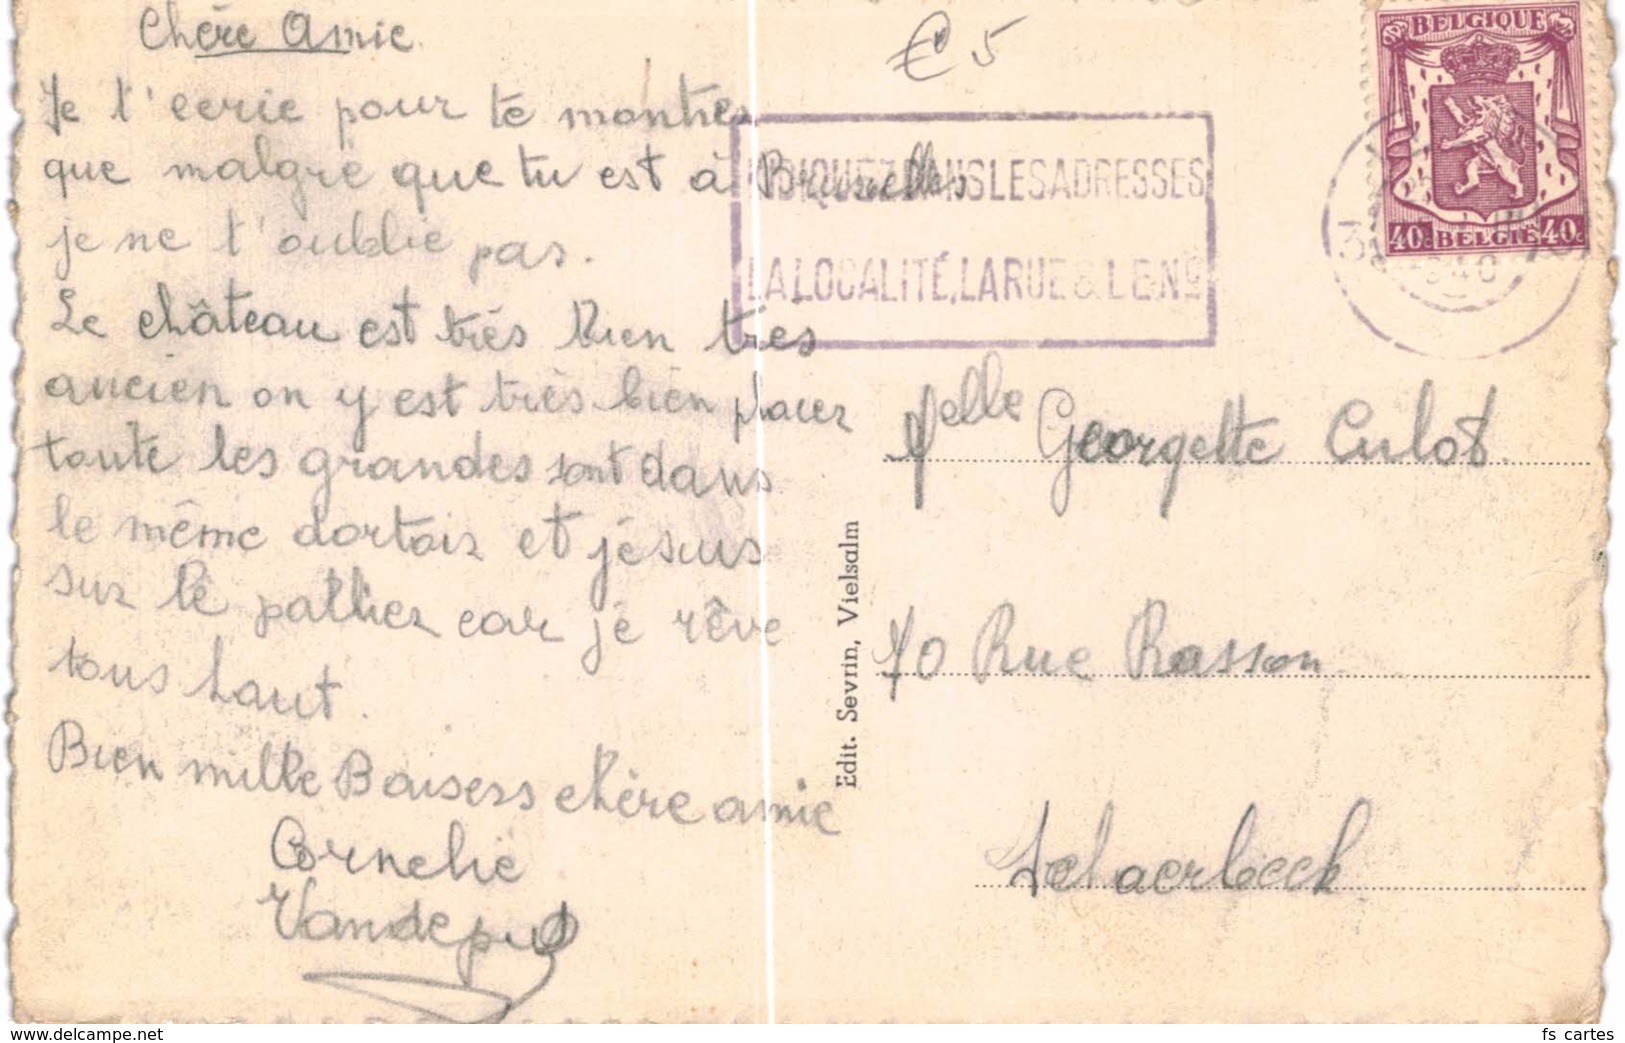 Chère Amie.
Je t'ecrie pour te montrer
que malgré que tu est à Bruxelles
je ne t'oublie pas.
Le château est très bien très
ancien on y est très bien placer
toute les grandes sont dans
le même dortoir et je suis
sur le pallier car je rêve
tous haut.
Bien mille Baisers chère amie
Cornelie
Vandeput
€ 5
INDIQUEZ DANS LES ADRESSES
LA LOCALITÉ, LA RUE & LE No
BELGIQUE
40c BELGIË 40c
Edit. Sevrin, Vielsalm
Melle Georgette Culot
70 Rue Rasson
Schaerbeek
www.delcampe.net
fs cartes